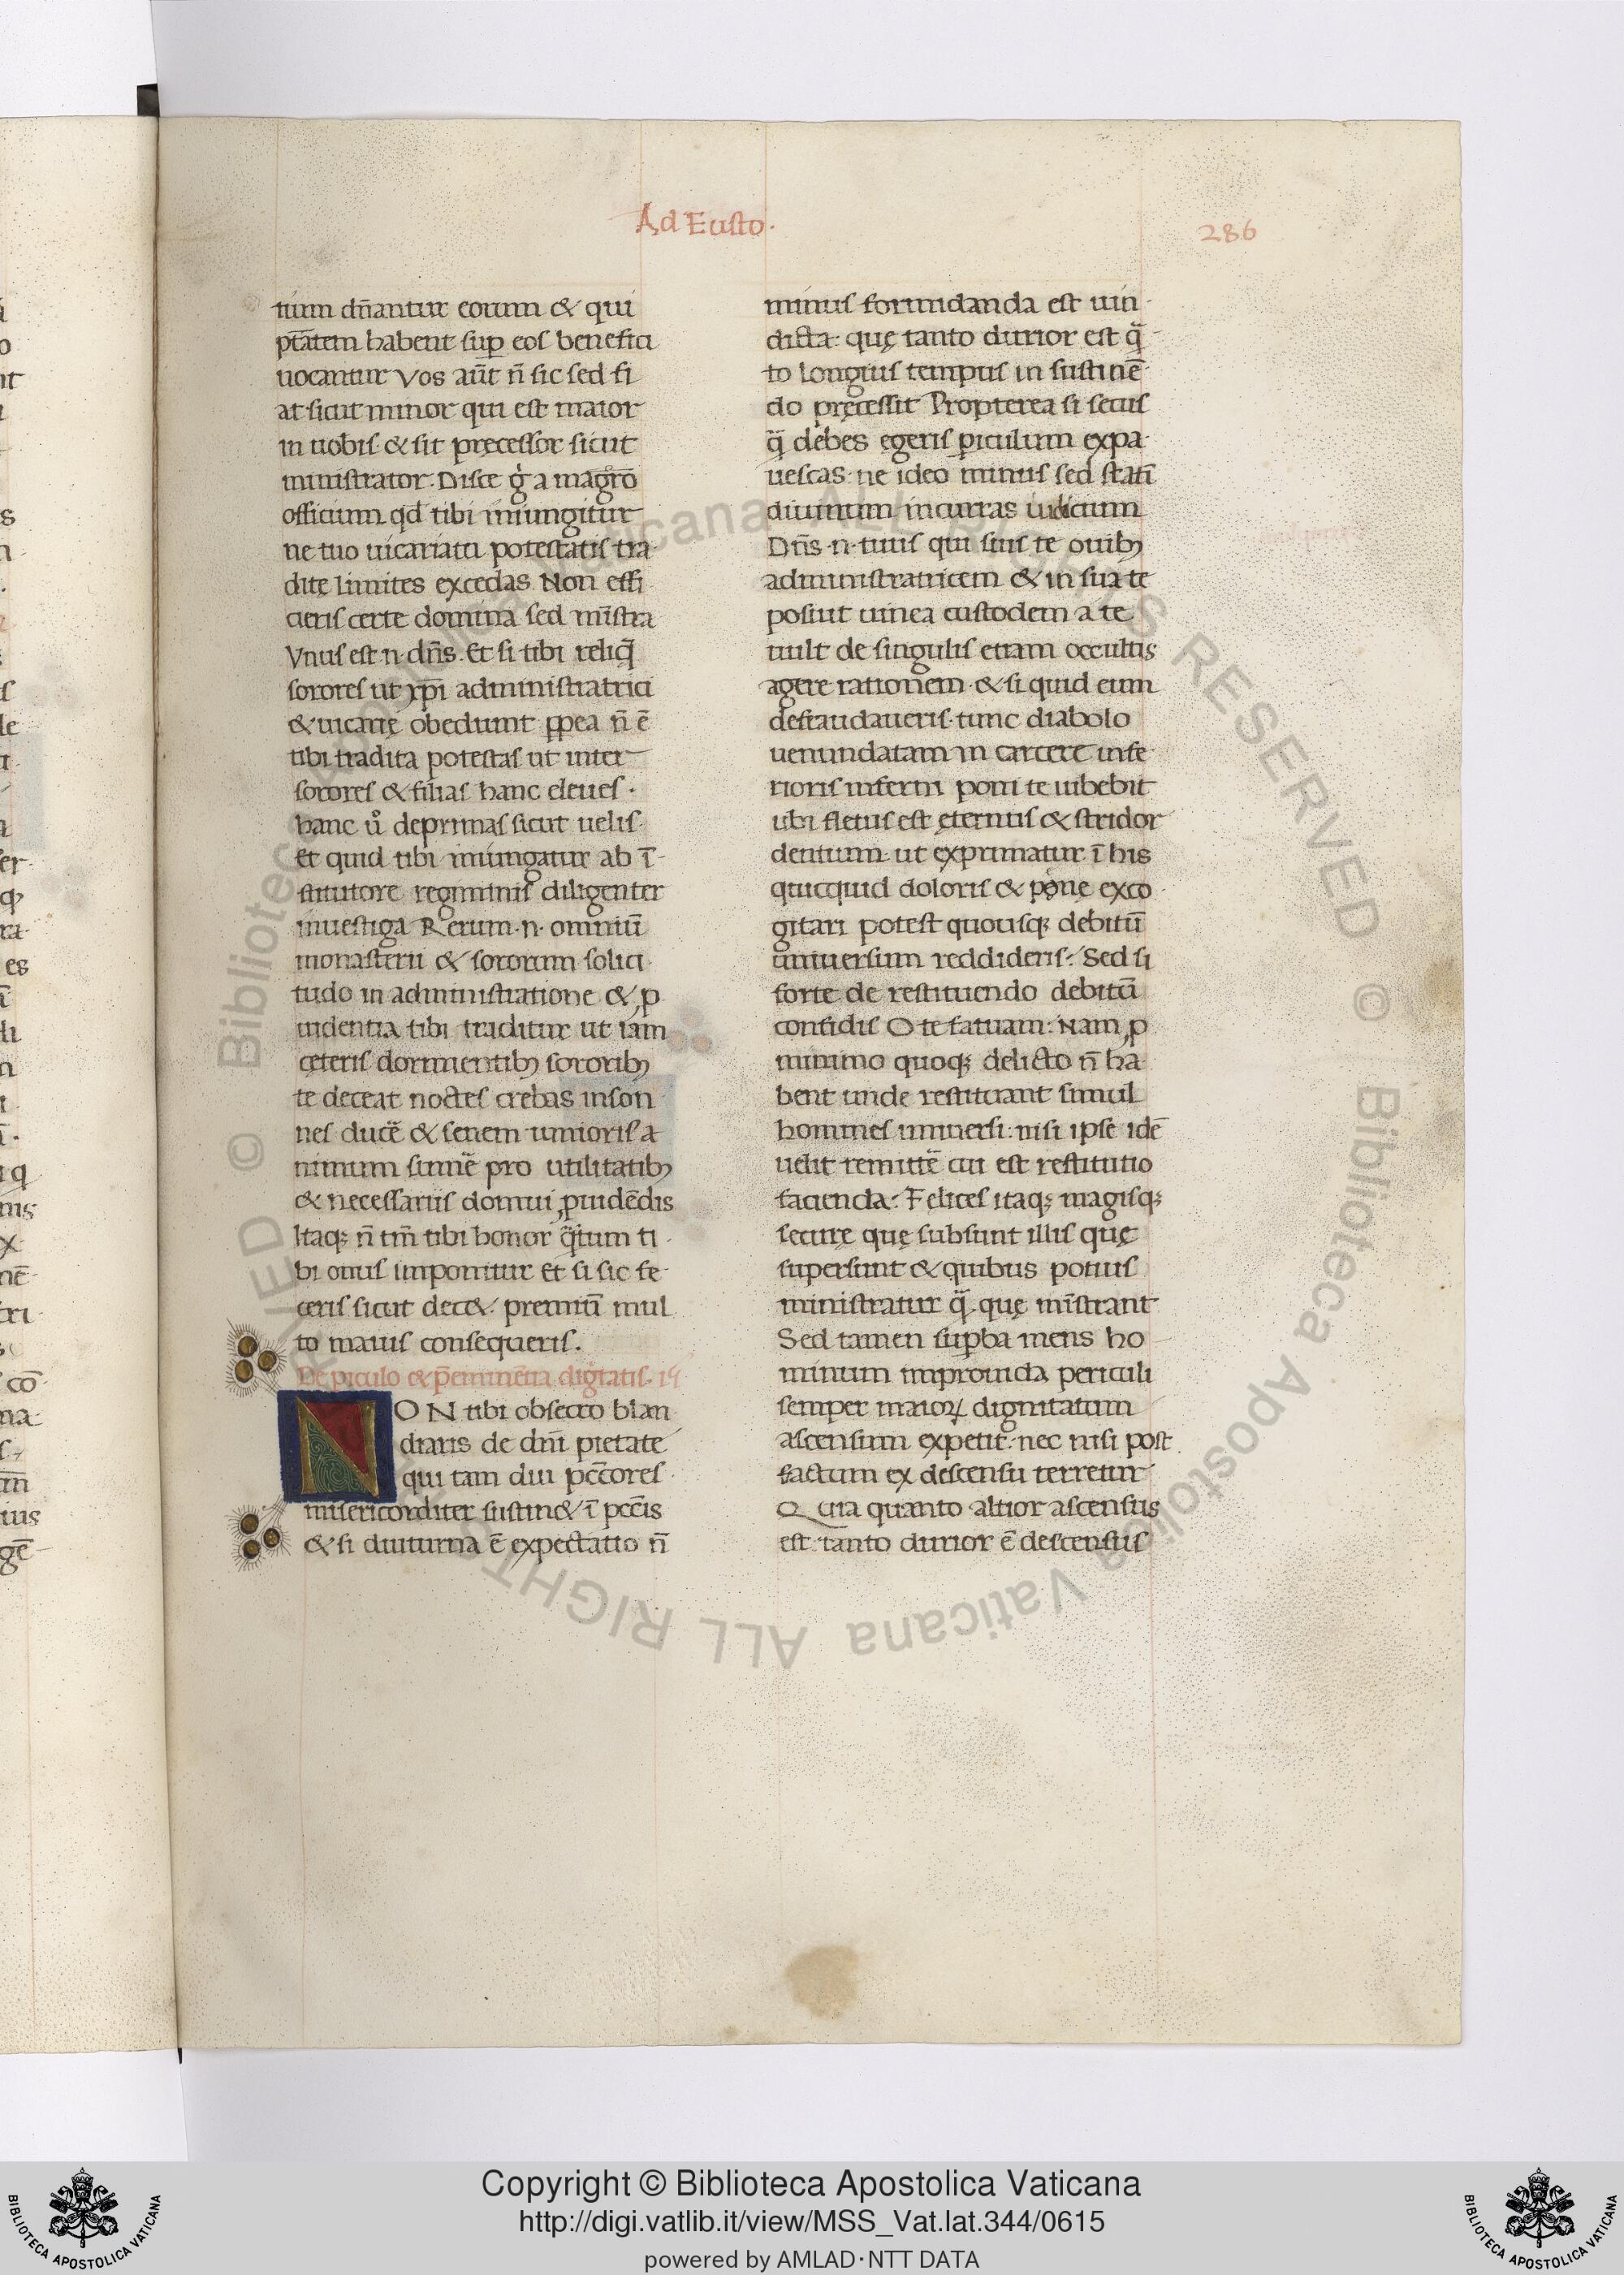 Ad Eusto.
286
tium dn̄antur eorum & qui
ptātem habent suꝑ eos benefici
uocantur Vos aūt n̄ sic sed fi
at sicut minor qui est maior
in uobis & sit pręcessor sicut
ministrator. Disce gͥ a magrō
officium qd tibi iniungitur
ne tuo uicariatu potestatis tra
ditę limites excedas. Non effi
cieris certe domina sed mīstra
Vnus est .n. dn̄s. Et si tibi reliq̄
sorores ut xp̄i administratrici
& uicarię obediunt ꝓpea n̄ ē
tibi tradita potestas ut inter
sorores & filias hanc eleues.
hanc uͦ deprimas sicut uelis.
Et quid tibi iniungatur ab ī
stitutore regiminis diligenter
inuestiga Rerum .n. omniū
monasterii & sororum solici
tudo in administratione & ꝓ
uidentia tibi traditur ut iam
cęteris dormientibꝫ sororibꝫ
te deceat noctes crebas inson
nes ducē & senem iunioris a
nimum sumē pro utilitatibꝫ
& necessariis domui ꝓuidēdis
Itaqꝫ n̄ tm̄ tibi honor qᷓtum ti
bi onus imponitur Et si sic fe
ceris sicut dec&. premiū mul
to maius consequeris.
De piculo & p̄eminētia digītatis. 19
NON tibi obsecro blan
diaris de dnī pietate
qui tam diu pcc̄ores
misericorditer sustin& ī pcc̄is
& si diuturna ē expectatio n̄
minus formidanda est uin
dicta: quę tanto durior est qᷓ
to longius tempus in sustinē
do pręcessit Propterea si secus
qᷓ debes egeris ꝑiculum expa
uescas: ne ideo minus sed statī
diuinum incurras iudicium
Dn̄s .n. tuus qui suis te ouibꝫ
administratricem & in sua te
posuit uinea custodem a te
uult de singulis etiam occultis
agere rationem & si quid eum
defraudaueris. tunc diabolo
uenundatam in carcere infe
rioris inferni poni te iubebit
ubi fletus est ęternus & stridor
dentium. ut exprimatur ī his
quicquid doloris & pęnę exco
gitari potest quousqꝫ debitū
uniuersum reddideris. Sed si
forte de restituendo debitū
confidis O te fatuam: Nam ꝓ
minimo quoqꝫ delicto n̄ ha
bent unde restituant simul
homines uniuersi: nisi ipse idē
uelit remittē cui est restitutio
facienda: Felices itaqꝫ magisqꝫ
secure quę subsunt illis quę
supersunt & quibus potius
ministratur qᷓ. quę mīstrant
Sed tamen suꝑba mens ho
minum improuida periculi
semper maioꝝ dignitatum
ascensum expetit. nec nisi post
factum ex descensu terretur
Quia quanto altior ascensus
est: tanto durior ē descensus
© Biblioteca Apostolica Vaticana ALL RIGHTS RESERVED
© Biblioteca Apostolica Vaticana ALL RIGHTS RESERVED
Copyright © Biblioteca Apostolica Vaticana
http://digi.vatlib.it/view/MSS_Vat.lat.344/0615
powered by AMLAD·NTT DATA
BIBLIOTECA APOSTOLICA VATICANA
BIBLIOTECA APOSTOLICA VATICANA